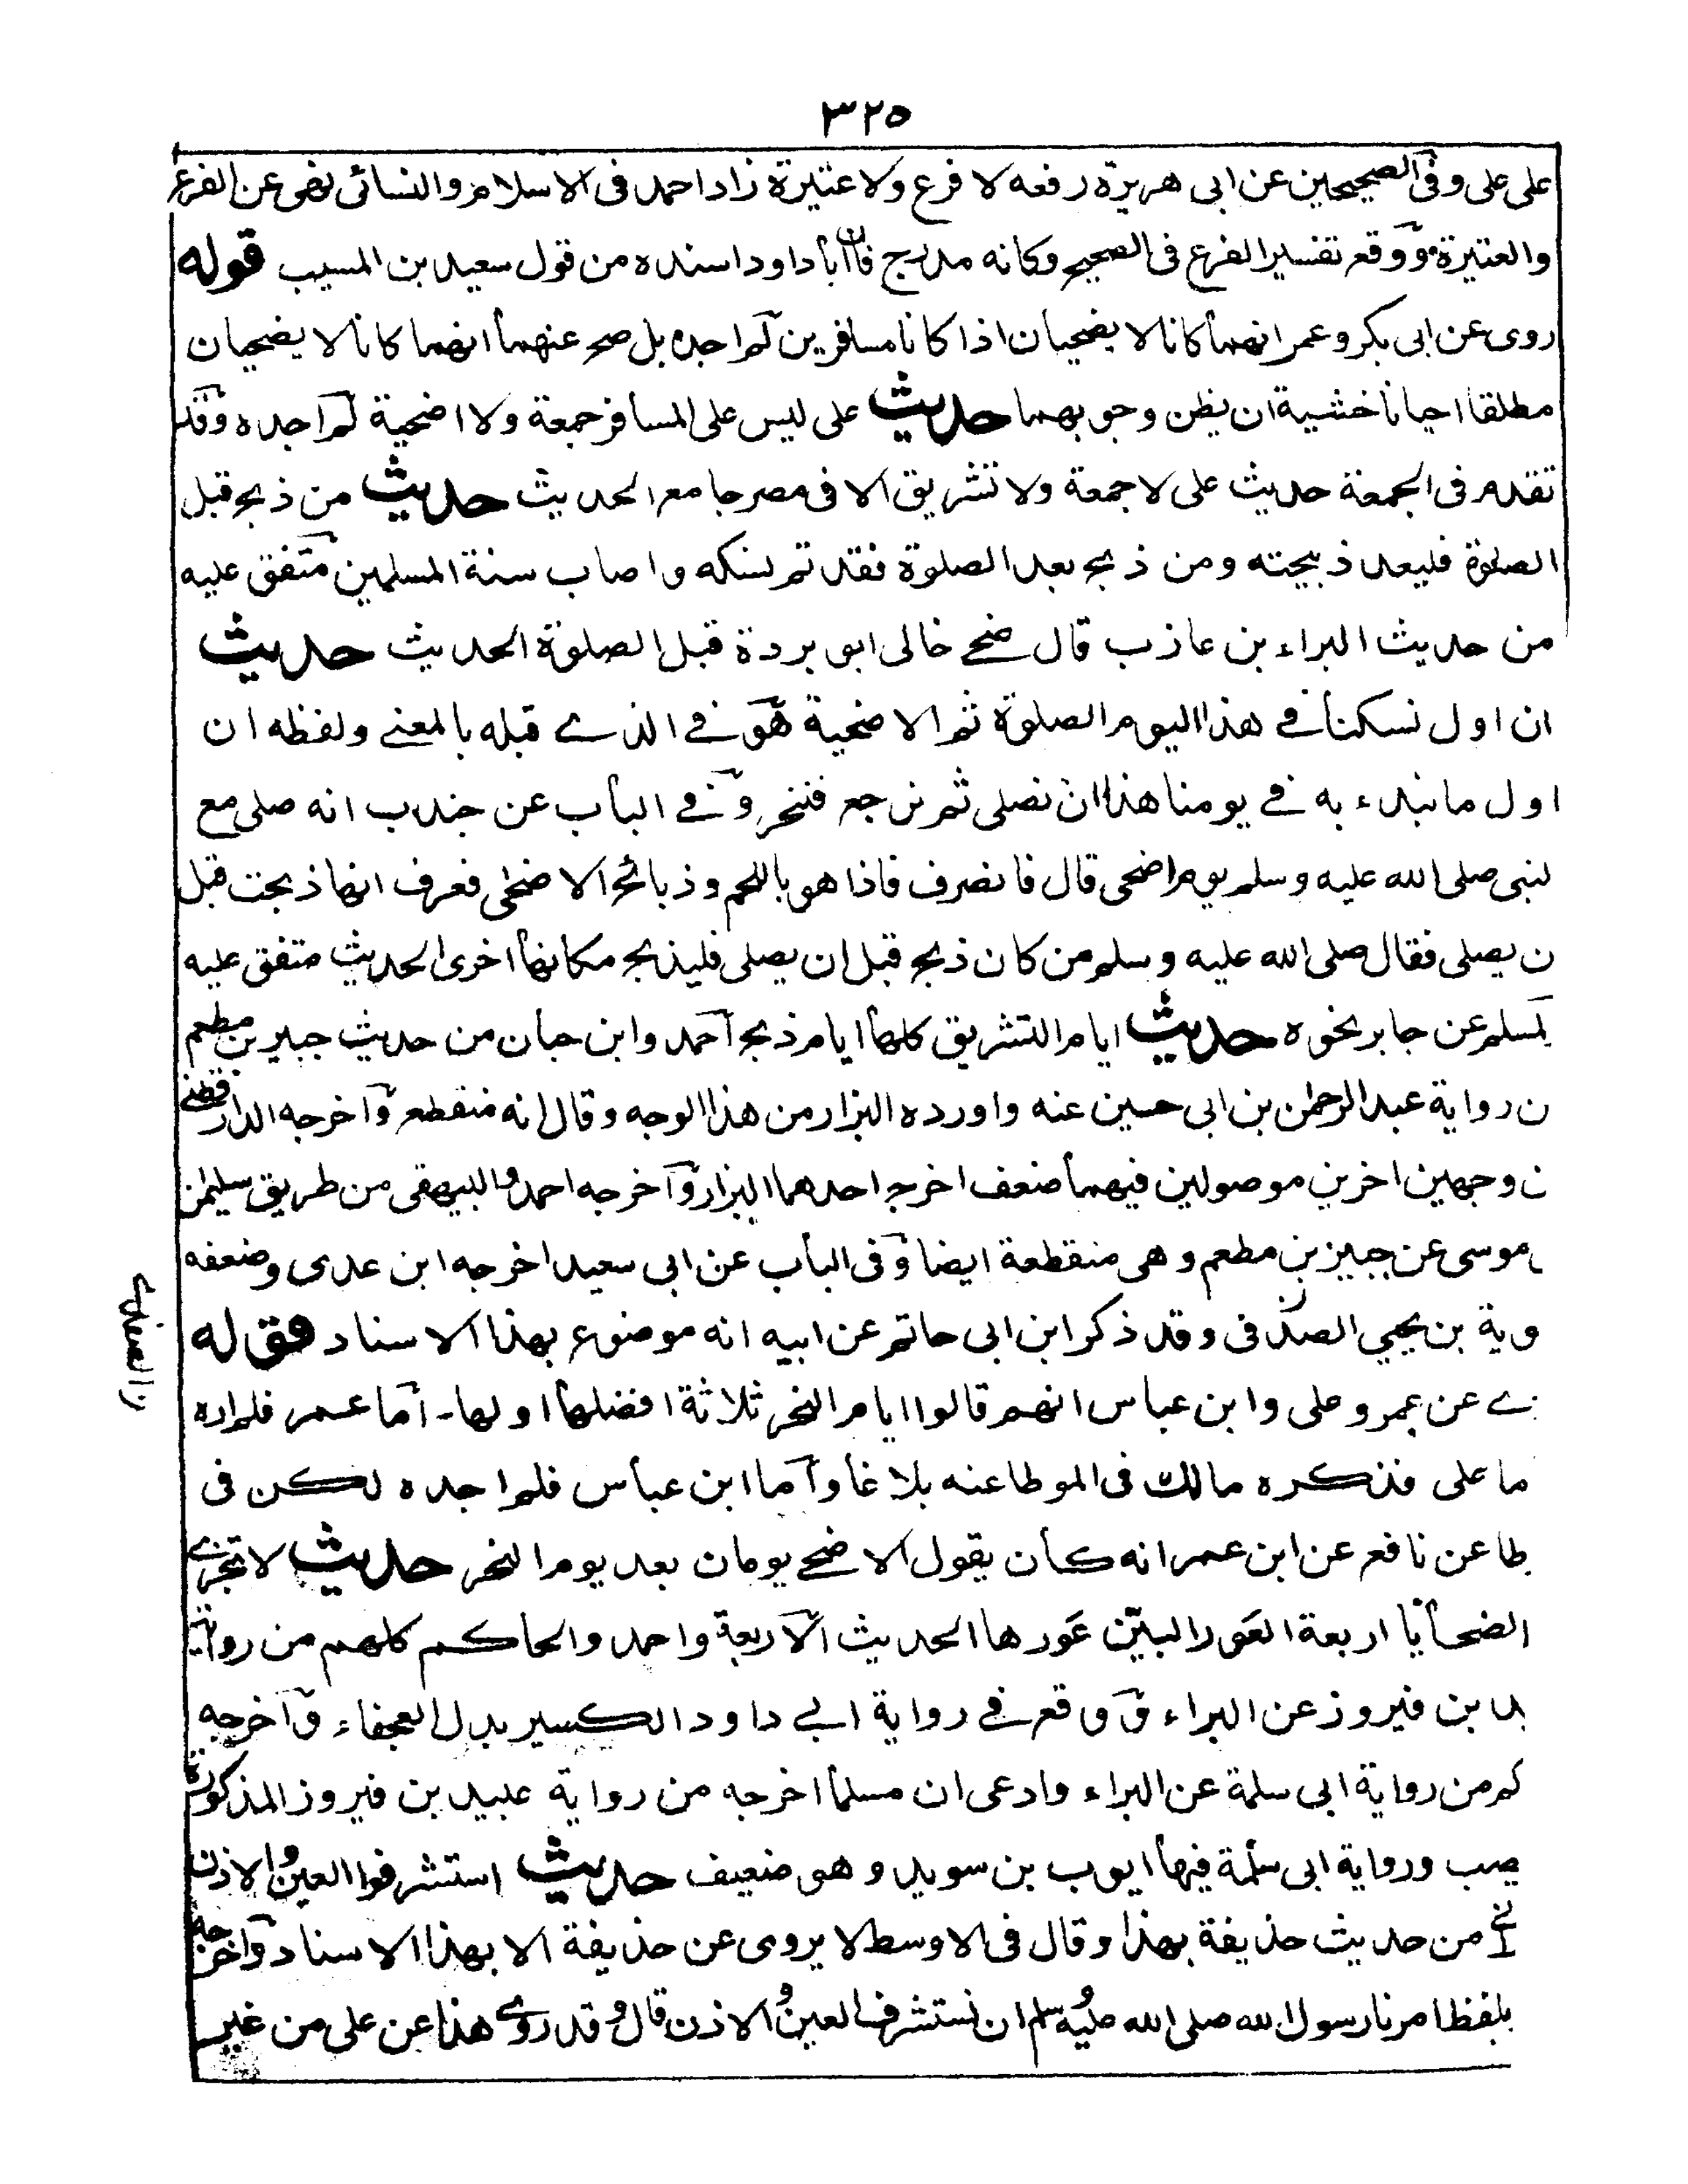 ٣٢٥
على على وفى الصحيحين عن ابى هريرة رفعه لا فرع ولا عتيرة زاد احمد فى الاسلام والنسائى نهى عن الفرع
والعتيرة ووقع تفسير الفرع فى الصحيح وكانه مدرج فان أبا داود اسنده من قول سعيد بن المسيب قوله
روى عن ابى بكر وعمر انهما كانا لا يضحيان اذا كانا مسافرين لم اجده بل صح عنهما انهما كانا لا يضحيان
مطلقا احيانا خشية ان يظن وجوبهما حديث على ليس على المسافر جمعة ولا اضحية لم اجده وقد
تقدم فى الجمعة حديث على لا جمعة ولا تشريق الا فى مصر جامع الحديث حديث من ذبح قبل
الصلوة فليعد ذبيحته ومن ذبح بعد الصلوة فقد تم نسكه واصاب سنة المسلمين متفق عليه
من حديث البراء بن عاذب قال ضحے خالى ابو بردة قبل الصلوة الحديث حديث
ان اول نسكنا فے هذا اليوم الصلوة ثم الاضحية هو فے الذے قبله بالمعنے ولفظه ان
اول ما نبدء به فے يومنا هذا ان نصلى ثم نرجع فننحر وفے الباب عن جندب انه صلى مع
لنبى صلى الله عليه وسلم يوم اضحى قال فانصرف فاذا هو باللحم وذبائح الاضحٰى فعرف انها ذبحت قبل
ن يصلى فقال صلى الله عليه وسلم من كان ذبح قبل ان يصلى فليذبح مكانها اخرى الحديث متفق عليه
لمسلم عن جابر نحوه حديث ايام التشريق كلها ايام ذبح احمد وابن حبان من حديث جبير بن مطعم
ن رواية عبد الرحمٰن بن ابى حسين عنه واورده البزار من هذا الوجه وقال انه منقطع واخرجه الدارقطنے
ن وجهين اخرين موصولين فيهما ضعف اخرج احدهما البزار واخرجه احمد والبيهقى من طريق سليمٰن
ن موسى عن جبير بن مطعم وهى منقطعة ايضا وفى الباب عن ابى سعيد اخرجه ابن عدى وضعفه
وية بن يحيي الصدفى وقد ذكر ابن ابى حاتم عن ابيه انه موضوع بهذا الاسناد قوله
ے عن عمر وعلى وابن عباس انهم قالوا ايام النحر ثلاثة افضلها اولها۔ اما عمر فلم اره
ما على فذكره مالك فى الموطا عنه بلاغا واما ابن عباس فلم اجده لكن فى
طا عن نافع عن ابن عمر انه كان يقول الاضحے يومان بعد يوم النحر حديث لا تجزے
الضحايا اربعة العَورا البيّن عَورها الحديث الاربعة واحمد والحاكم كلهم من رواية
بد ابن فيروز عن البراء ووقع فے رواية ابے داود الكسير بدل العجفاء واخرجه
كم من رواية ابى سلمة عن البراء وادعى ان مسلما اخرجه من رواية عبيد بن فيروز المذكورة
صب ورواية ابى سلمة فيها ايوب بن سويد وهو ضعيف حديث استشرفوا العين والاذن
من حديث حذيفة بهذا وقال فى الاوسط لا يروى عن حذيفة الا بهذا الاسناد واخرجه
بلفظ امرنا رسول الله صلى الله عليه وسلم ان نستشرف العين والاذن قال وقد روے هذا عن على من غير